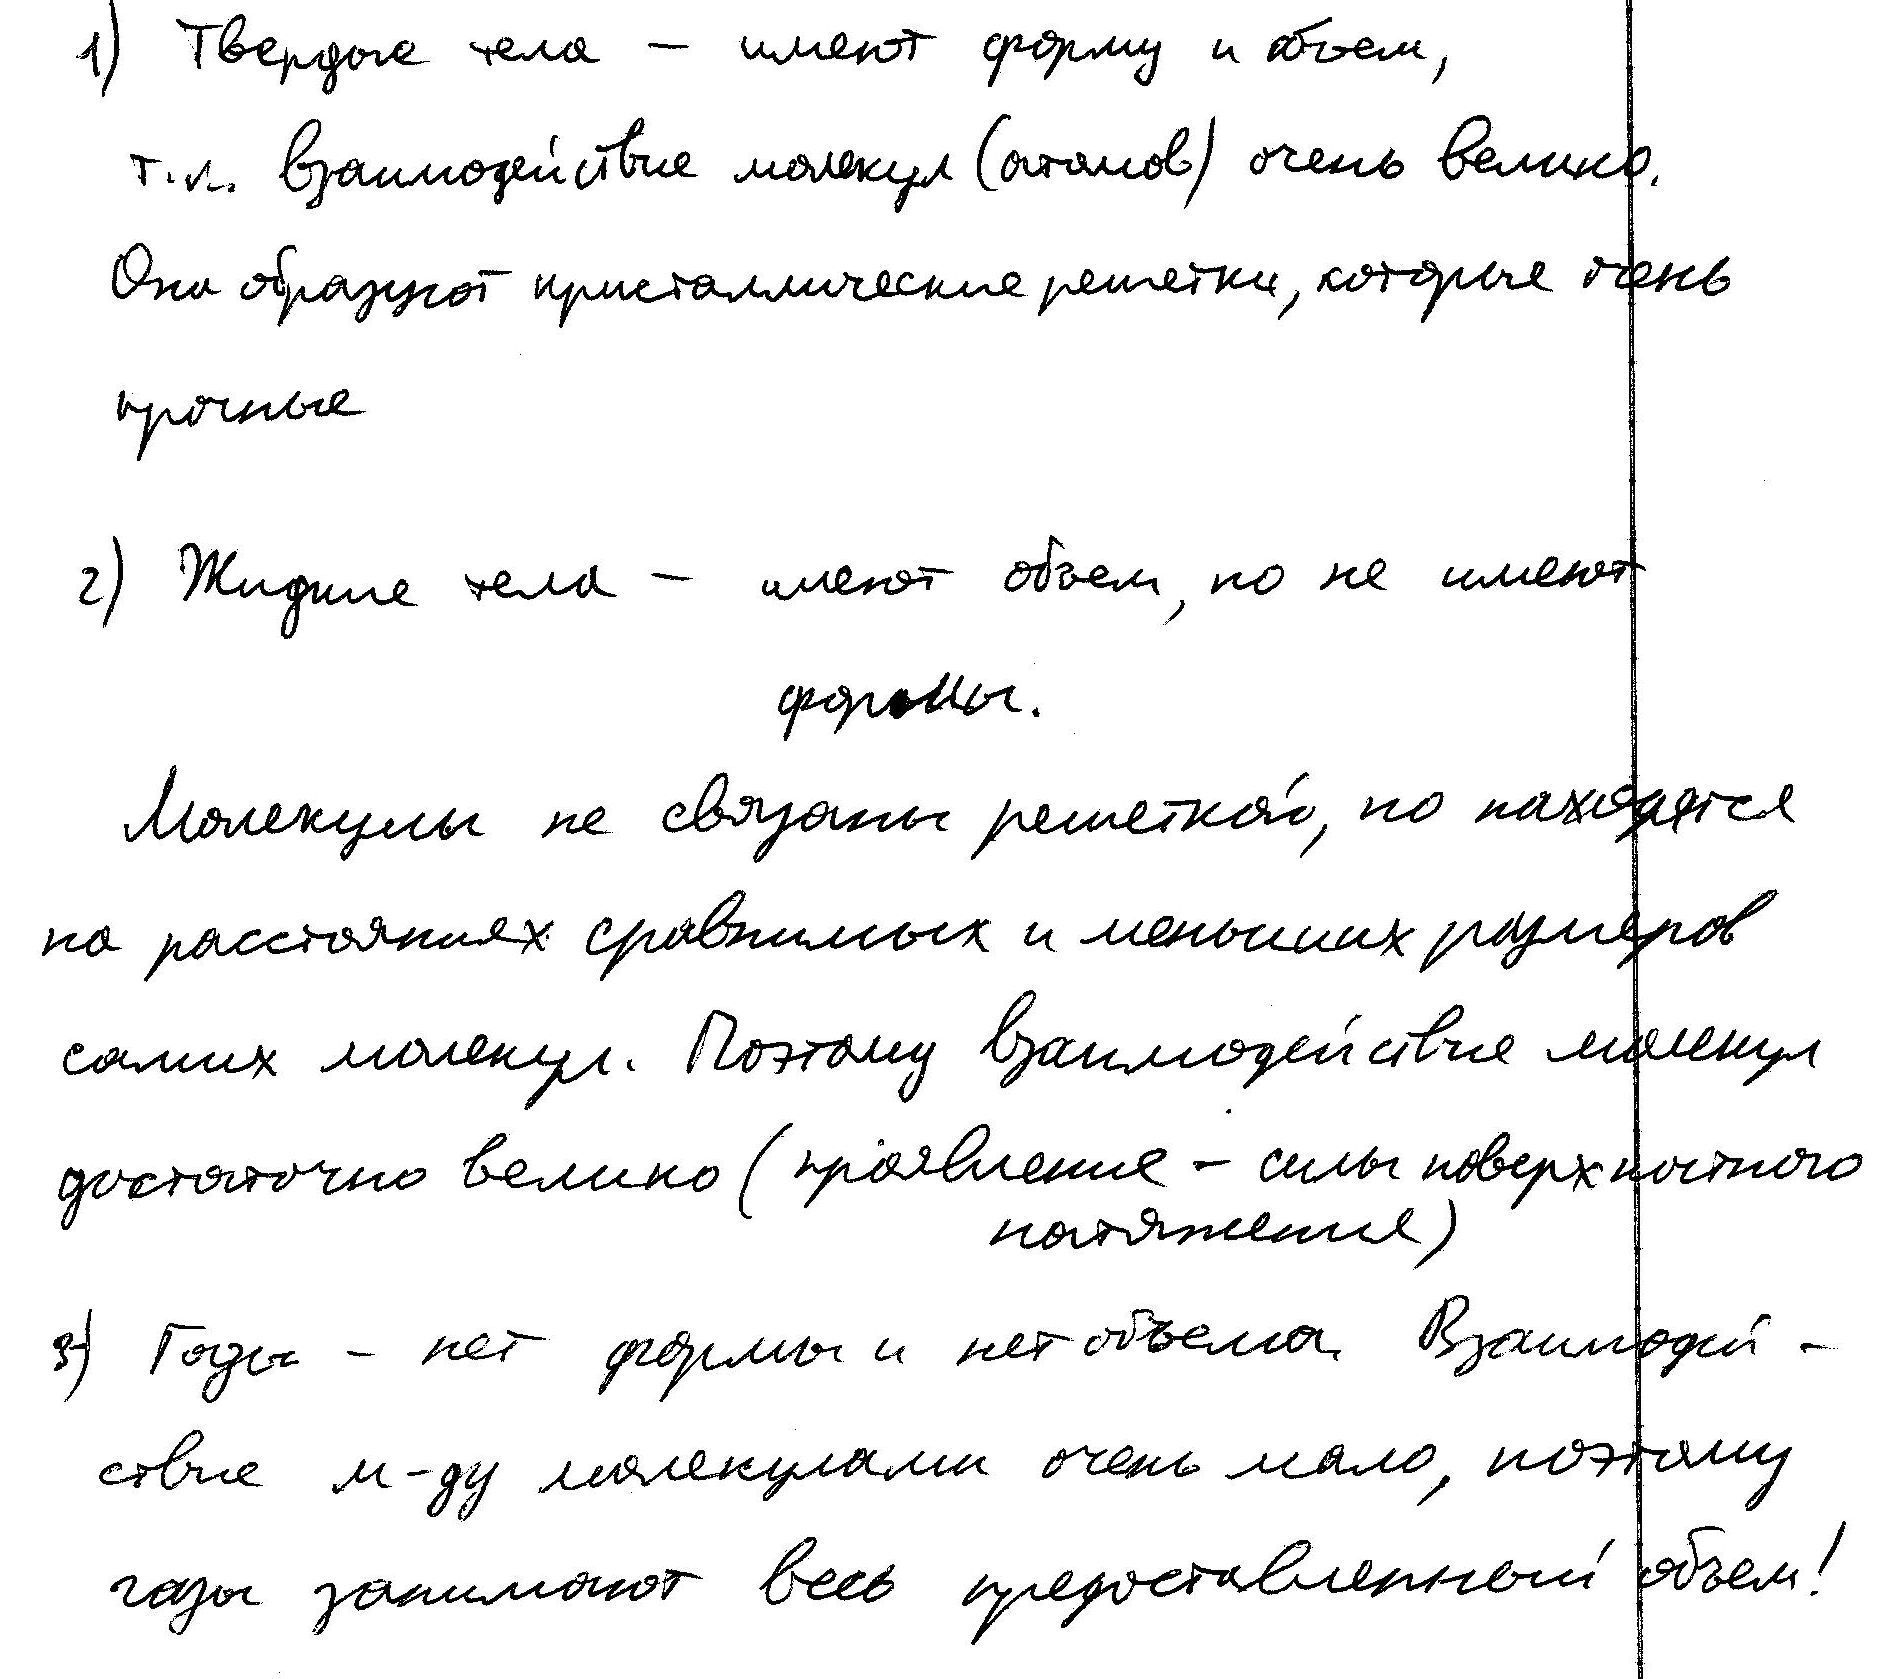 1) Твердые тела – имеют форму и объем,
т.к. взаимодействие молекул (атомов) очень велико.
Они образуют кристаллические решетки, которые очень
прочные
2) Жидкие тела – имеют объем, но не имеют
формы.
Молекулы не связаны решеткой, но находятся
на расстояниях сравнимых и меньших размеров
самих молекул. Поэтому взаимодействие молекул
достаточно велико (проявление – силы поверхностного
натяжение)
3) Газы – нет формы и нет объема. Взаимодей-
ствие м-ду молекулами очень мало, поэтому
газы занимают весь предоставленный объем!